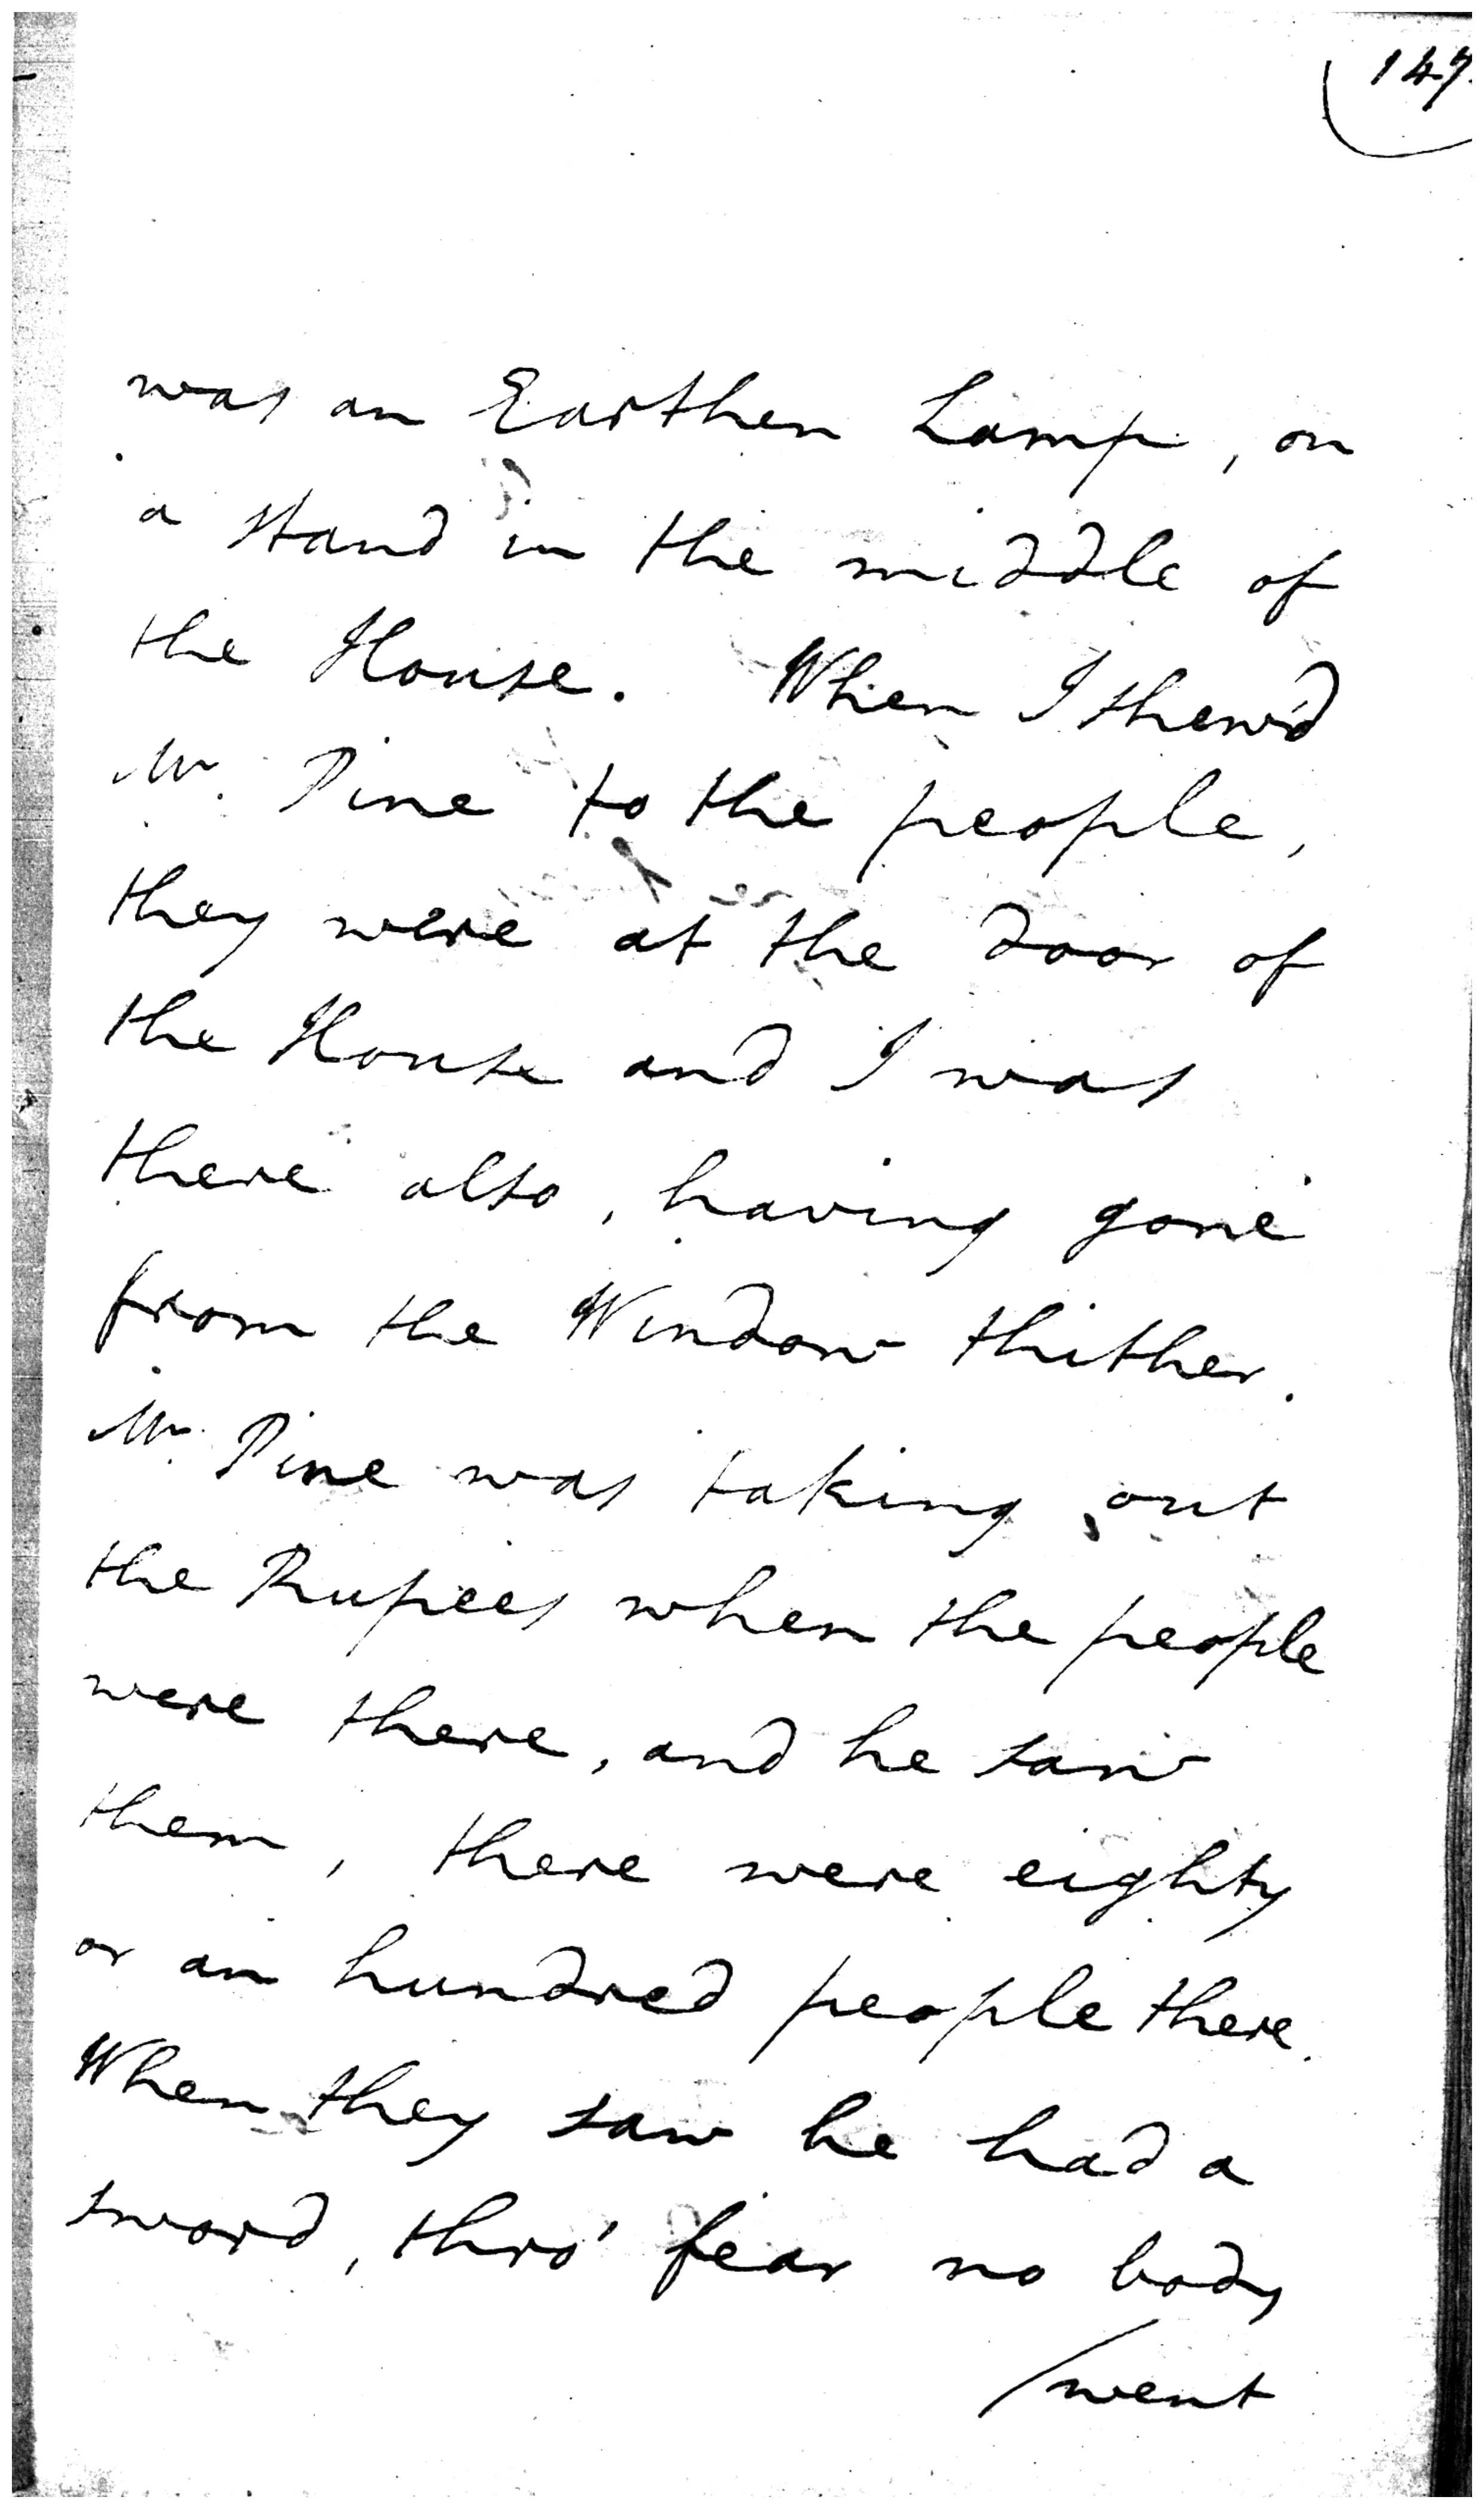 147
was an Earthen Lamp, on
a stand in the middle of
the House. When I shew'd
Mr. Pine to the people,
they were at the door of
the House and I was
there also, having gone
from the Window thither.
Mr. Pine was taking out
the Rupees when the people
were there, and he saw
them, there were eighty
or an hundred people there.
When they saw he had a
sword, thro' fear no body
/went